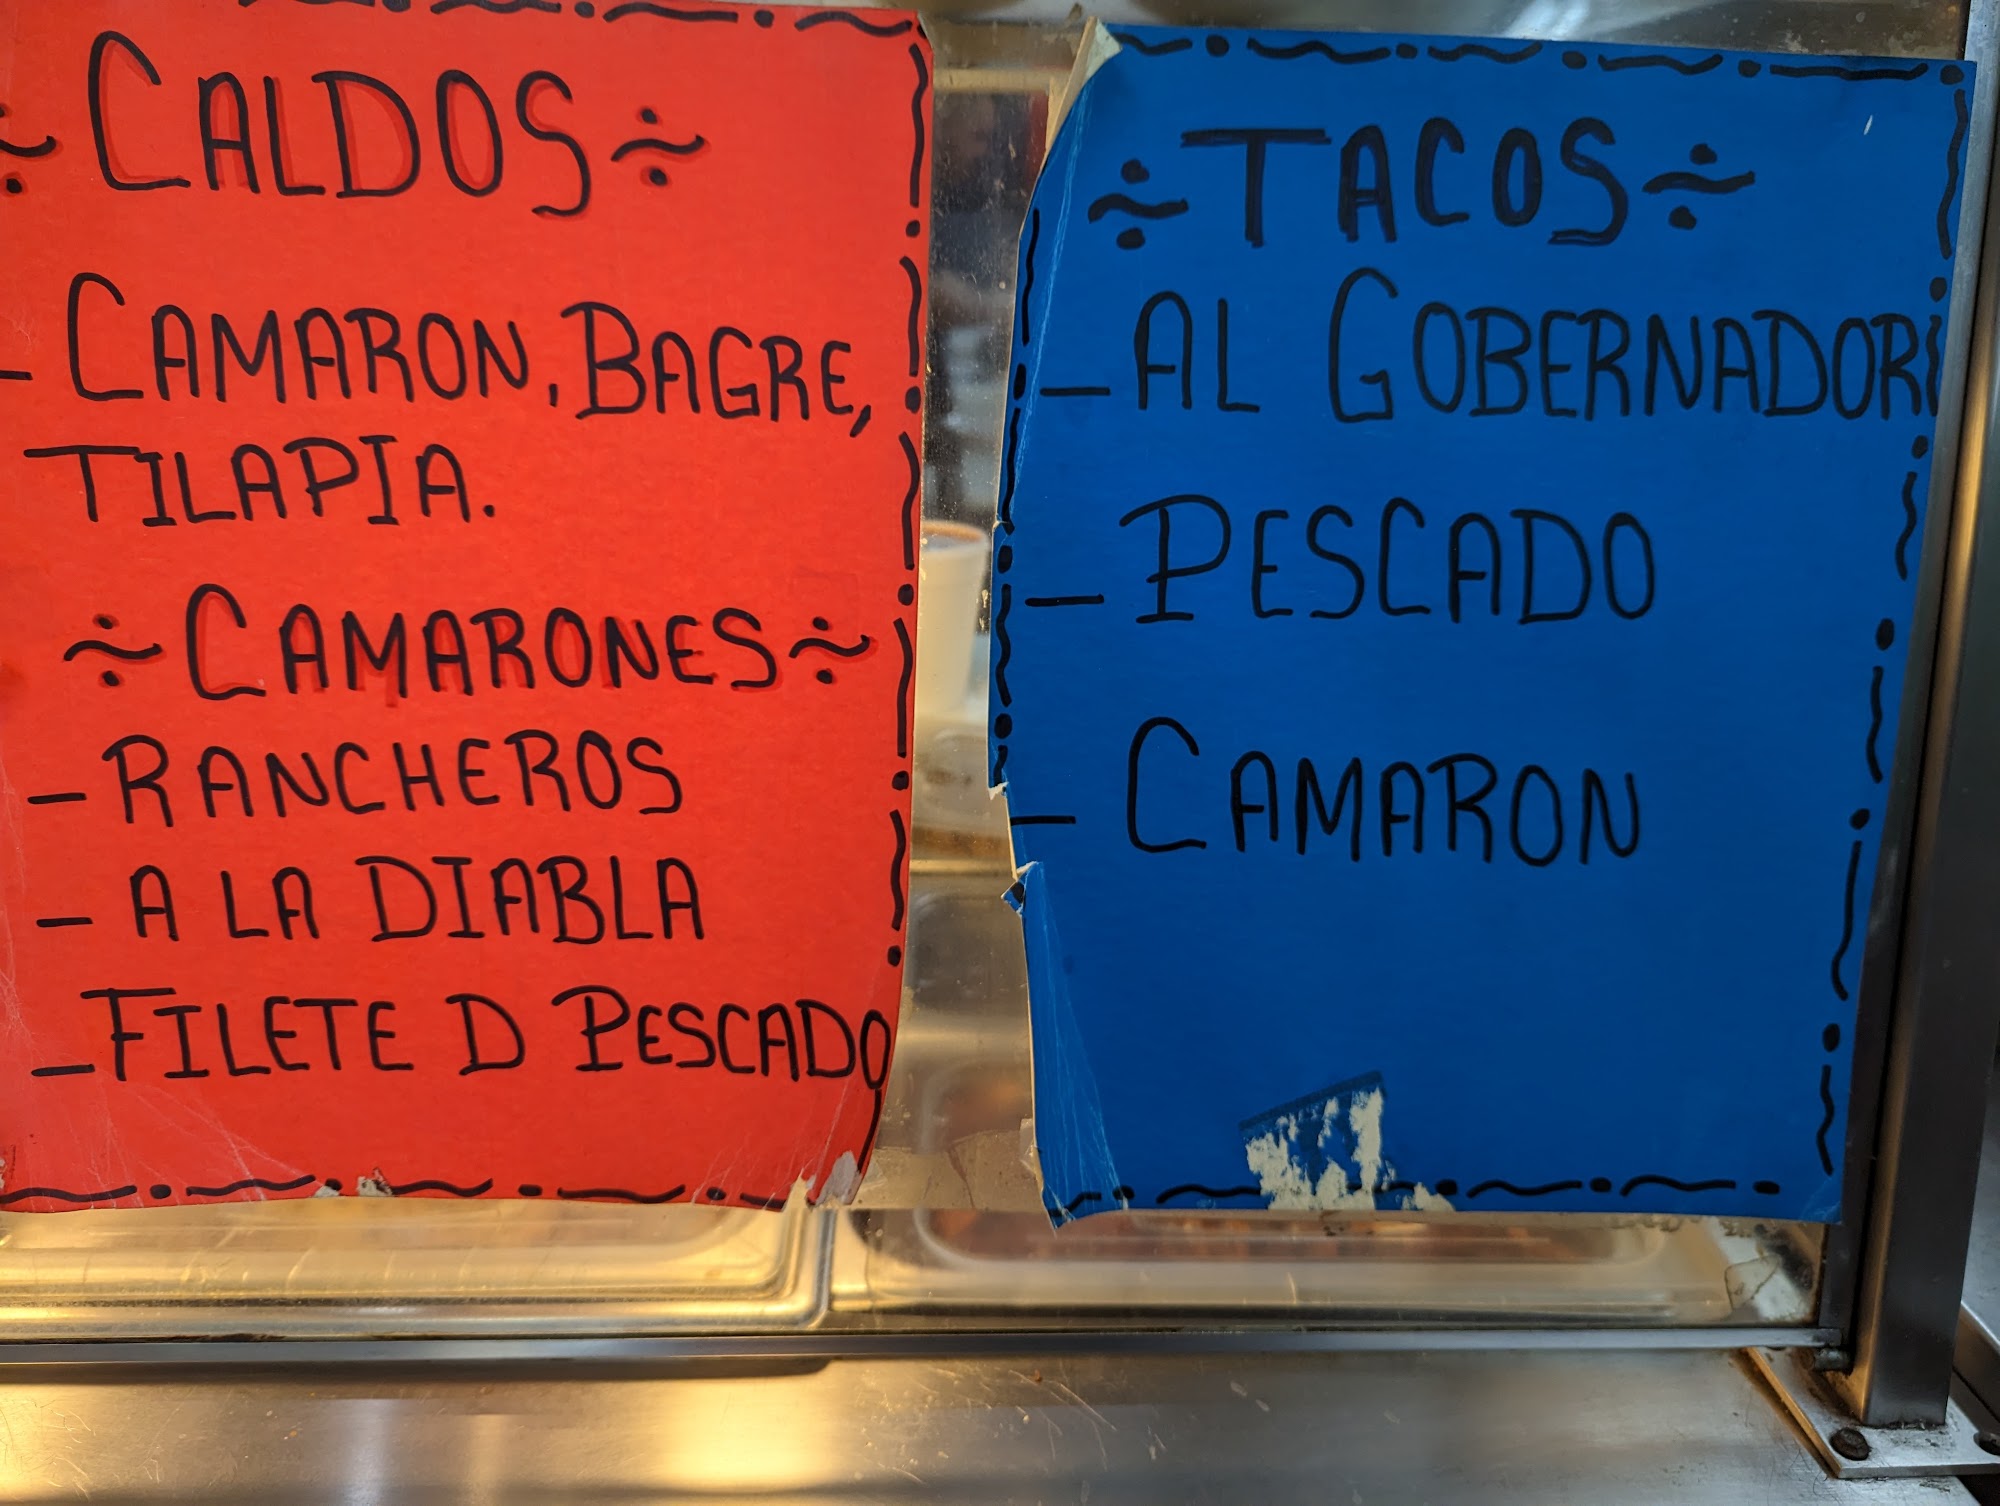 CALDOS
- CAMARON, BAGRE,
TILAPIA.
CAMARONES
- RANCHEROS
- A LA DIABLA
- FILETE D PESCADO
TACOS
- AL GOBERNADOR
- PESCADO
- CAMARON